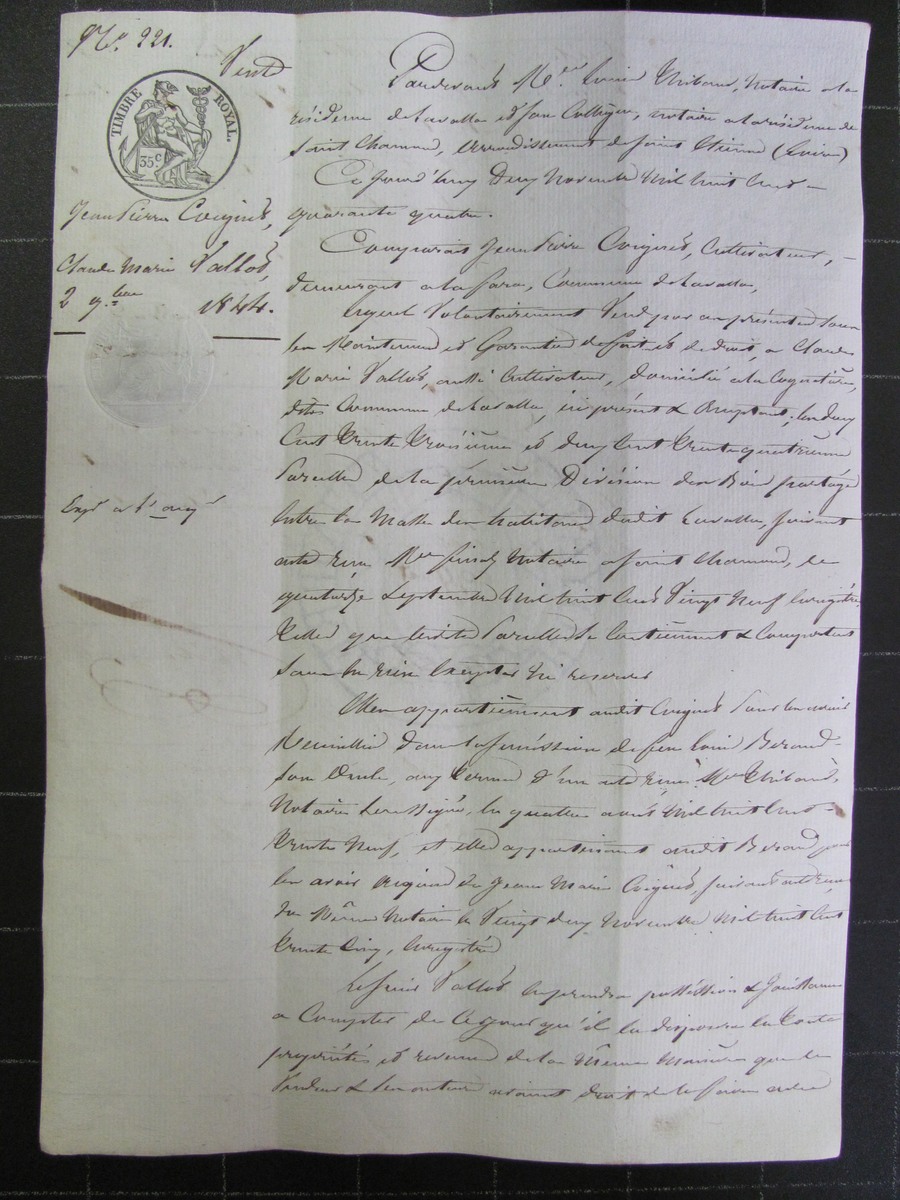 N.° 221.
Vente
TIMBRE ROYAL.
35 c.
Jean Pierre Coignet,
Claude Marie Vallos,
2 9.bre 1844.
Expé a l'acqr
Pardevant Me Louis Thibaud, Notaire a la
résidence de Lavalla et son Collègue, notaire a la résidence de
Saint Chamond, arrondissement de Saint Etienne (Loire)
Ce jourd'huy Deux Novembre Mil huit Cent
quarante quatre.
Comparait Jean Pierre Coignet, Cultivateur,
demeurant a la Commune de Lavalla,
Lequel Volontairement Vend par ces présentes sous
les Maintenue et Garantie de fait et de droit, a Claude
Marie Vallos, aussi Cultivateur, domicilié a la
dite Commune de Lavalla, ici présent & acceptant, les deux
Cent trente troisième et deux Cent trente quatrième
Parcelles de la première Division des Bois partagés
Entre la Masse des habitans dudit Lavalla, suivant
acte reçu Me Finaz Notaire a Saint Chamond, le
quatorze Septembre Mil huit Cent Vingt Neuf Enregistré
telles que lesdites Parcelles se Contiennent & Comportent
sans en rien Excepter ni reserver
Elles appartiennent audit Coignet Pour les avoir
recueillies dans la succession de feu Louis Beraud
son Oncle, aux termes d'un acte reçu Me Thibaud,
Notaire Soussigné, le quatre août Mil huit Cent
trente Neuf, et elles appartenaient audit Beraud pour
les avoir acquises de Jean Marie Coignet, suivant acte reçu
du Même Notaire le Vingt deux Novembre Mil huit Cent
trente Cinq, Enregistré
Ledit Vallos en prendra possession & Jouissance
a Compter de Ce jour qu'il en disposera en toute
propriété et revenus de la Même Manière que le
Vendeur & Ses auteurs avaient droit de le faire